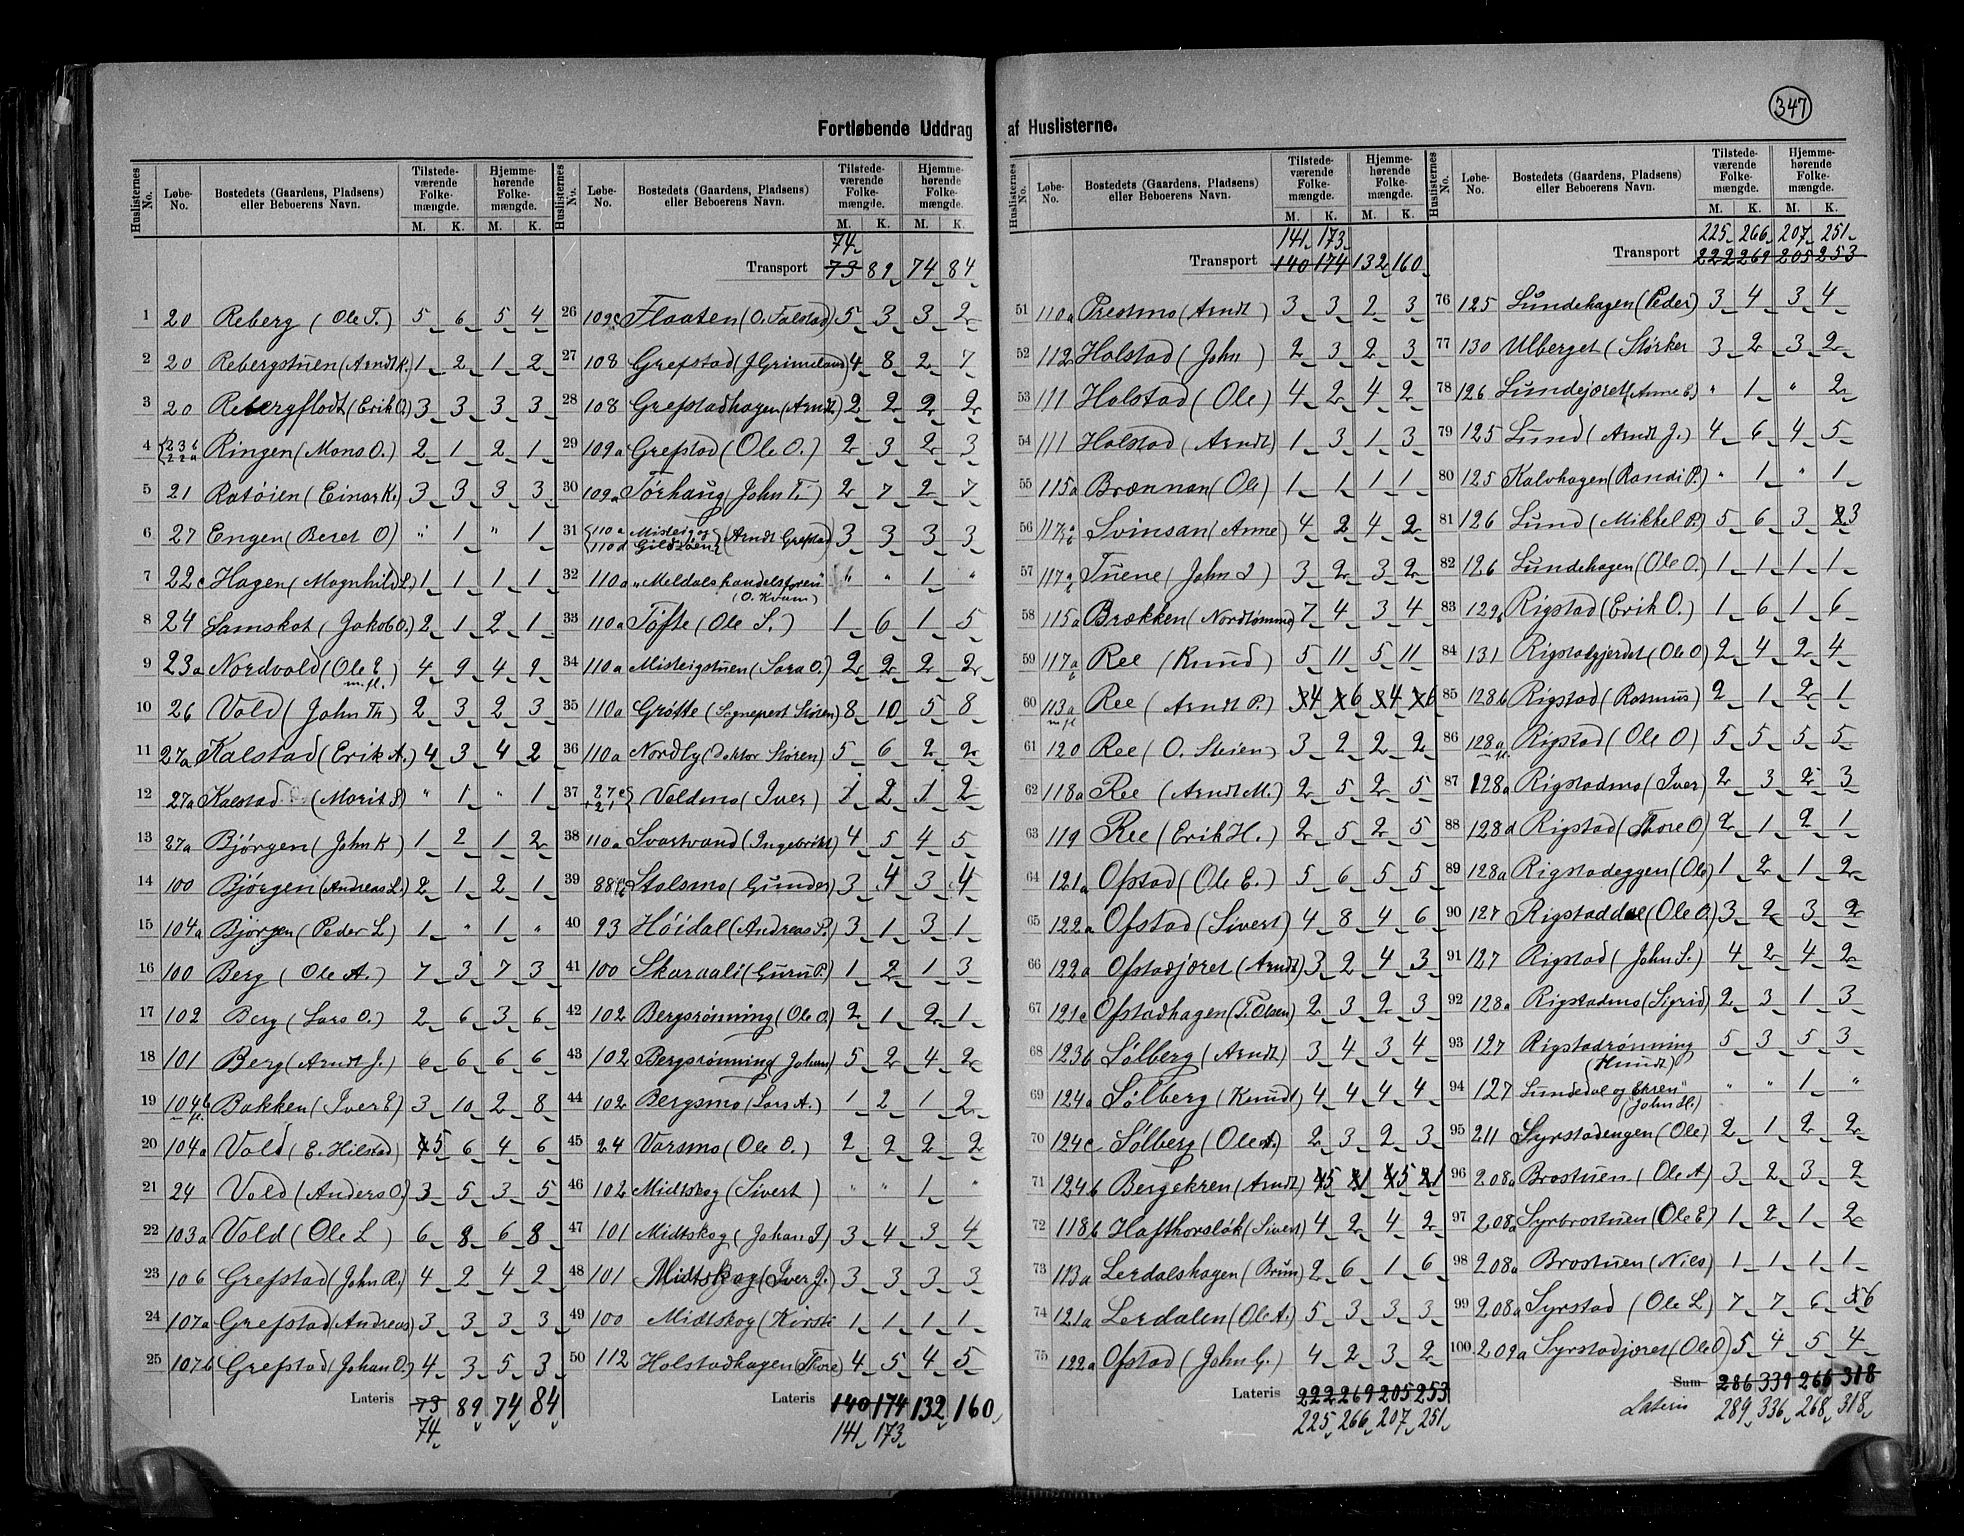 347
Fortløbende Uddrag af Huslisterne.
Huslisternes No. | Løbe-No. | Bostedets (Gaardens, Pladsens) eller Beboerens Navn. | Tilstedeværende Folkemængde. M. K. | Hjemmehørende Folkemængde. M. K.
1 20 Reberg (Ole T.) 5 6 5 4
2 20 Rebergstuen (Arndt K. 1 2 1 2
3 20 Rebergflodt (Erik O.) 3 3 3 3
4 Ringen (Mons O.) 2 1 2 1
5 21 Ratøien (Einar K.) 3 3 3 3
6 27 Engen (Beret O) " 1 " 1
7 22c Hagen (Magnhild L.) 1 1 1 1
8 24 Lamskot (Jakob O. 2 1 2 1
9 23a Nordvold (Ole E m.fl. 4 9 4 9
10 26 Vold (John Th) 2 3 2 3
11 27a Kalstad (Erik A.) 4 3 4 2
12 27a Kalstad (Marit " 1 " 1
13 27a Bjørgen (John K) 1 2 1 2
14 100 Bjørgen (Andreas L.) 2 1 2 1
15 104a Bjørgen (Peder L) 1 " 1 "
16 100 Berg (Ole A.) 7 3 7 3
17 102 Berg (Lars O.) 2 6 3 6
18 101 Berg (Arndt J.) 6 6 6 6
19 104b Bakken (Iver E) 3 10 2 8
20 104a Vold (E. Hilstad) 5 6 4 6
21 24 Vold (Anders O.) 3 5 3 5
22 103a Vold (Ole L) 6 8 6 8
23 106 Grefstad (John R.) 4 2 4 2
24 107a Grefstad (Andreas) 3 3 3 3
25 107b Grefstad (Johan O.) 4 3 5 3
Lateris 73 89 74 84
74
Huslisternes No. | Løbe-No. | Bostedets (Gaardens, Pladsens) eller Beboerens Navn. | Tilstedeværende Folkemængde. M. K. | Hjemmehørende Folkemængde. M. K.
74
Transport 73 89 74 84
26 109c Flaaten (O. Falstad) 5 3 3 2
27 108 Grefstad (J Grimeland) 4 8 2 7
28 108 Grefstadhagen (Arndt) 2 2 2 2
29 109a Grefstad (Ole O.) 2 3 2 3
30 109a Tørhaug (John T.) 2 7 2 7
31 110a 110d Misteig og (Arndt Grefstad 3 3 3 3
32 110a "Meldals handelsforen" (O. Kvam) " " 1 "
33 110a Tøfte (Ole S.) 1 6 1 5
34 110a Misteigstuen (Sara O.) 2 2 2 2
35 110a Grøtte (Sognepest Støren) 8 10 5 8
36 110a Nordby (Doktor Støren) 5 6 2 2
37 Voldmo (Iver) 1 2 1 2
38 110a Svartvand (Ingebrikt) 4 5 4 5
39 Stolsmo (Gunder) 3 4 3 4
40 93 Høidal (Andreas P.) 3 1 3 1
41 100 Skaraali (Guru P. 1 2 1 3
42 102 Bergsrønning (Ole O. 2 1 2 1
43 102 Bergsrønning (Johan) 5 2 4 2
44 102 Bergsmo (Lars A.) 1 2 1 2
45 24 Varsmo (Ole O.) 2 2 2 2
46 102 Midtskog (Sivert) " " 1 "
47 101 Midtskog (Johan J) 3 4 3 4
48 101 Midtskog (Iver J. 3 3 3 3
49 100 Midtskog (Kirsti 1 1 1 1
50 112 Holstadhagen (Thore 4 5 4 5
Lateris 140 174 132 160
141 173
Huslisternes No. | Løbe-No. | Bostedets (Gaardens, Pladsens) eller Beboerens Navn. | Tilstedeværende Folkemængde. M. K. | Hjemmehørende Folkemængde. M. K.
141 173
Transport 140 174 132 160
51 110a Prestmo (Arndt) 3 3 2 3
52 112 Holstad (John) 2 3 2 3
53 111 Holstad (Ole) 4 2 4 2
54 111 Holstad (Arndt) 1 3 1 3
55 115a Brønnan (Ole) 1 1 1 1
56 Svinsan (Anne) 4 2 4 2
57 Tuene (John I) 3 2 3 2
58 115a Brækken (Nordtømme) 7 4 3 4
59 Ree (Knud) 5 11 5 11
60 113a m.fl Ree (Arndt P.) 4 6 4 6
61 120 Ree (O. Steien) 3 2 2 2
62 118a Ree (Arndt M.) 2 5 2 5
63 119 Ree (Erik H.) 2 5 2 5
64 121a Ofstad (Ole E.) 5 6 5 5
65 122a Ofstad (Sivert) 4 8 4 6
66 122a Ofstadjæret (Arndt) 3 2 4 3
67 121c Ofstadhagen (T. Olsen) 2 3 2 3
68 123b Sølberg (Arndt) 3 4 3 4
69 124a Sølberg (Knudt) 4 4 4 4
70 124c Sølberg (Ole A.) 2 3 2 3
71 124b Bergekren (Arndt) 5 1 5 1
72 118b Hafthorsløk (Sivert) 4 2 4 2
73 113a Lerdalshagen (Brun) 2 6 1 6
74 121a Lerdalen (Ole A.) 5 3 3 3
75 122a Ofstad (John G.) 4 2 3 2
Lateris 222 269 205 253
225 266 207 251
Huslisternes No. | Løbe-No. | Bostedets (Gaardens, Pladsens) eller Beboerens Navn. | Tilstedeværende Folkemængde. M. K. | Hjemmehørende Folkemængde. M. K.
225 266 207 251
Transport 222 269 205 253
76 125 Lundehagen (Peder) 3 4 3 4
77 130 Ulberget (Størker 3 2 3 2
78 126 Lundejæret (Anne E.) " 1 " 2
79 125 Lund (Arndt J.) 4 6 4 5
80 125 Kalvhagen (Randi P.) " 1 " 1
81 126 Lund (Mikkel P.) 5 6 3 3
82 126 Lundehagen (Ole O.) 1 1 1 1
83 129 Rigstad (Erik O.) 1 6 1 6
84 131 Rigstadgjerdet (Ole O) 2 4 2 4
85 128b Rigstad (Rasmus) 2 1 2 1
86 128a Rigstad (Ole O) 5 5 5 5
87 128a Rigstadmo (Iver) 2 3 2 3
88 128d Rigstad (Thore O) 2 1 2 1
89 128a Rigstadeggen (Ole) 1 2 1 2
90 127 Rigstaddal (Ole O.) 3 2 3 2
91 127 Rigstad (John S.) 4 2 4 2
92 128a Rigstadmo (Sigrid) 2 3 1 3
93 127 Rigstadrønning (Knudt) 5 3 5 3
94 127 Lundedal og Ekren" (John H.) " " 1 "
95 211 Syrstadengen (Ole) 2 1 2 2
96 208a Brostuen (Ole A) 3 2 3 2
97 208a Syrbrostuen (Ole E) 1 2 1 2
98 208a Brostuen (Nils) 1 1 1 1
99 208a Syrstad (Ole L) 7 7 6 6
100 209a Syrstadjæret (Ole O) 5 4 5 4
Sum 286 339 266 318
Lateris 289 336 268 318